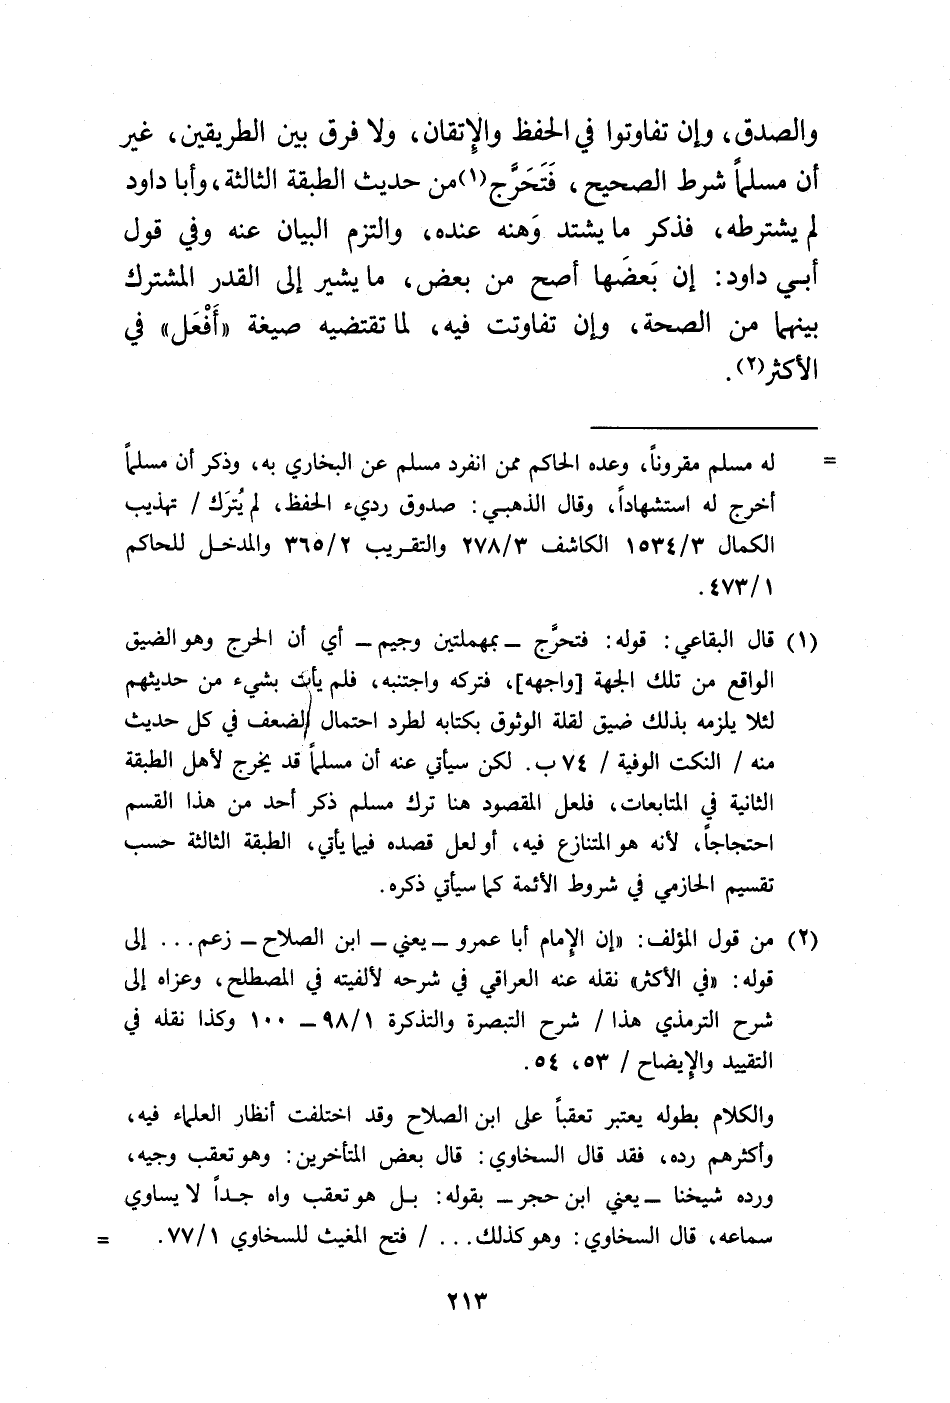 والصدق، وإن تفاوتوا في الحفظ والإتقان، ولا فرق بين الطريقين، غير
أن مسلماً شرط الصحيح، فَتَحَرَّج(١) من حديث الطبقة الثالثة، وأبا داود
لم يشترطه، فذكر ما يشتد وَهنه عنده، والتزم البيان عنه وفي قول
أبي داود: إن بَعضَها أصح من بعض، ما يشير إلى القدر المشترك
بينهما من الصحة، وإن تفاوتت فيه، لما تقتضيه صيغة «أَفْعَل» في
الأكثر(٢).
= له مسلم مقروناً، وعده الحاكم ممن انفرد مسلم عن البخاري به، وذكر أن مسلماً
أخرج له استشهاداً، وقال الذهبي: صدوق رديء الحفظ، لم يُترَك / تهذيب
الكمال ١٥٣٤/٣ الكاشف ٢٧٨/٣ والتقريب ٣٦٥/٢ والمدخل للحاكم
٤٧٣/١.
(١) قال البقاعي: قوله: فتحرَّج – بمهملتين وجيم – أي أن الحرج وهو الضيق
الواقع من تلك الجهة [واجهه]، فتركه واجتنبه، فلم يأت بشيء من حديثهم
لئلا يلزمه بذلك ضيق لقلة الوثوق بكتابه لطرد احتمال الضعف في كل حديث
منه / النكت الوفية / ٧٤ ب. لكن سيأتي عنه أن مسلماً قد يخرج لأهل الطبقة
الثانية في المتابعات، فلعل المقصود هنا ترك مسلم ذكر أحد من هذا القسم
احتجاجاً، لأنه هو المتنازع فيه، أو لعل قصده فيما يأتي، الطبقة الثالثة حسب
تقسيم الحازمي في شروط الأئمة كما سيأتي ذكره.
(٢) من قول المؤلف: «إن الإمام أبا عمرو – يعني – ابن الصلاح – زعم... إلى
قوله: «في الأكثر» نقله عنه العراقي في شرحه لألفيته في المصطلح، وعزاه إلى
شرح الترمذي هذا / شرح التبصرة والتذكرة ٩٨/١ – ١٠٠ وكذا نقله في
التقييد والإيضاح / ٥٣، ٥٤.
والكلام بطوله يعتبر تعقباً على ابن الصلاح وقد اختلفت أنظار العلماء فيه،
وأكثرهم رده، فقد قال السخاوي: قال بعض المتأخرين: وهو تعقب وجيه،
ورده شيخنا – يعني ابن حجر – بقوله: بل هو تعقب واه جداً لا يساوي
سماعه، قال السخاوي: وهو كذلك... / فتح المغيث للسخاوي ٧٧/١. =
٢١٣